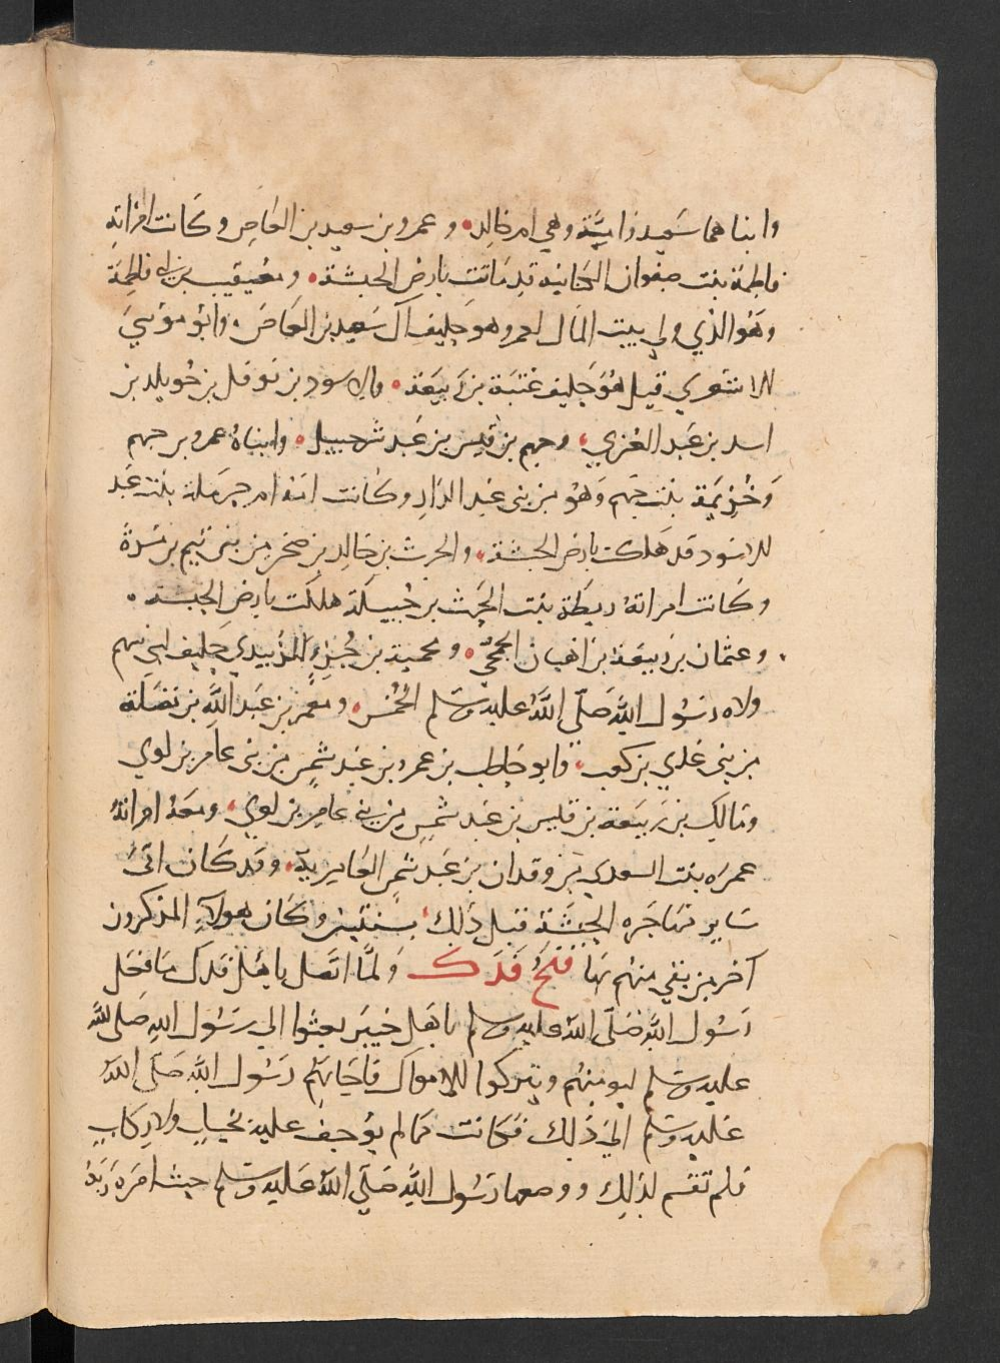 وابناهما سَعيد وامَيَّة وهي ام خالد، وعمرو بن سعيد بن العَاص وكانت امراته
فاطمة بنت صفوان الكنانيه قد ماتت بارض الحبشة، ومُعيقيب بن ابي فاطِمَة
وهَو الذي ولي بيت المَال لعمر وهو حليف آل سَعِيد بن العَاص، وابُو موُسيَ
الاشعَري قيل هُوَ حَليف عُتبَة بن رَبيعَة، والاسود بن نوفل بن خُويلد بن
اسد بن عَبد العُزي، وجهم بن قيس بن عَبد شرحبيل، وابناهُ عمرو بن جهم
وَخُزيمَة بنت جَهم وَهُو من بني عَبد الدَار وكانت امه ام حَرمَلة بنت عَبد
الاسَود قد هَلكت بارض الحبشة، والحرث بن خَالِد بن صَخر من بني تَيم بن مُرَة
وكَانت امراتهُ ريطَة بنت الحَرث بن جُبيلَة هلكت بارض الحبشة،
وعثمان بن رَبيعَة بن اهبان الجمحيّ، ومحمية بن جُزءِ الزُبيدي حَليف لبني سَهم
ولاه رسُول اللهِ صَلّى اللهُ عليه وسَلم الخُمْس، ومَعمر بن عَبد اللهِ بن نَضَلَة
من بني عَدِي بن كعب، وابو حَاطب بن عمرو بن عَبد شمس من بني عَامر بن لوي
ومَالِك بن رَبيعَة بن قيس بن عَبد شمس من بني عامِر بن لوي، ومَعَهُ امراتهُ
عمرَه بنت السعدي بن وقدان بن عَبد شمس العَامِريه، وقد كَان اتىَ
سَاير مَهاجَره الحبشَة قبل ذَلِكَ بسَنتين وكَان هولآءِ المذكرون
آخر من بَقي منهُم بهَا فَتْحُ فَدَك وَلمَّا اتصَل باهْل فدَك مَا فعَل
رَسُول اللهِ صَلّى اللهُ عليه وسلم باهَل خيبَر بعثوا الي رسَوُل اللهِ صَلى اللهُ
عليه وسَلم ليومنهُم ويتركوا الاموَال فاجَابهُم رَسُول اللهِ صَلّى اللهُ
عَليه وسَلم الي ذَلِكَ فكانت مَمَا لم يوُجف عليه بخيلٍ ولا رِكَابٍ
فلم تقسَم لذلِك ووضعها رَسُول اللهِ صَلّى اللهُ عَليه وسَلم حيث امَرهَ رَبهُ